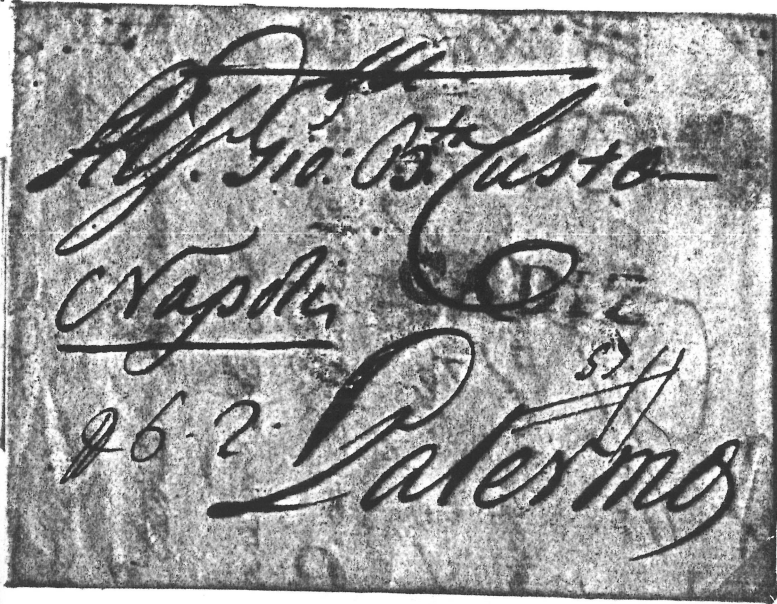 Al Sig. Gio: B.ta Custo
Napoli
57
26. 2. Palermo